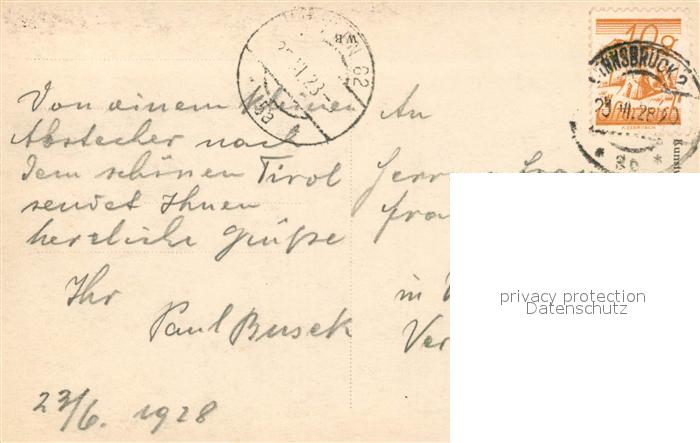 Von einem kleinen
Abstecher nach
dem schönen Tirol
sendet Ihnen
herzliche Grüße
Ihr
Paul Busek
23/6. 1928
An
Herrn
Frau
in
Ver
10g
INNSBRUCK 2
WIEN 62
5a
WB
Kunst
privacy protection
Datenschutz